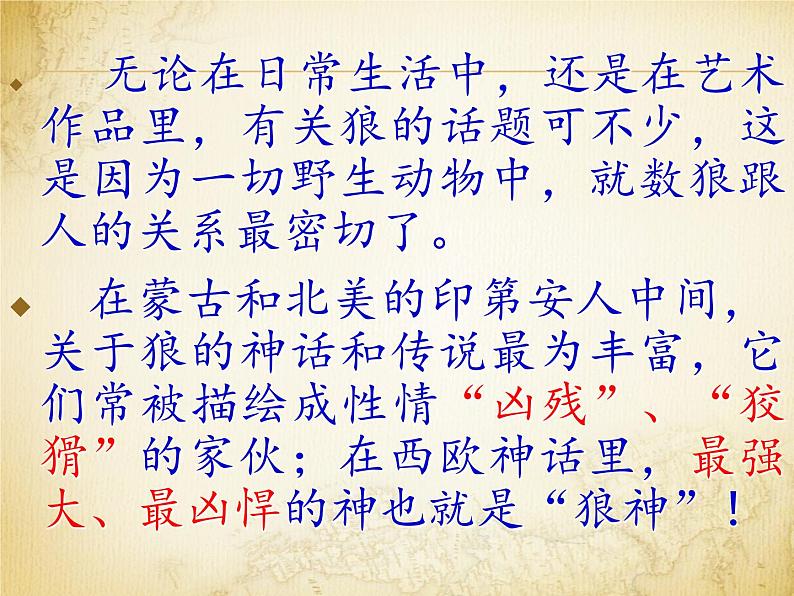 无论在日常生活中，还是在艺术
作品里，有关狼的话题可不少，这
是因为一切野生动物中，就数狼跟
人的关系最密切了。
在蒙古和北美的印第安人中间，
关于狼的神话和传说最为丰富，它
们常被描绘成性情“凶残”、“狡
猾”的家伙；在西欧神话里，最强
大、最凶悍的神也就是“狼神”！